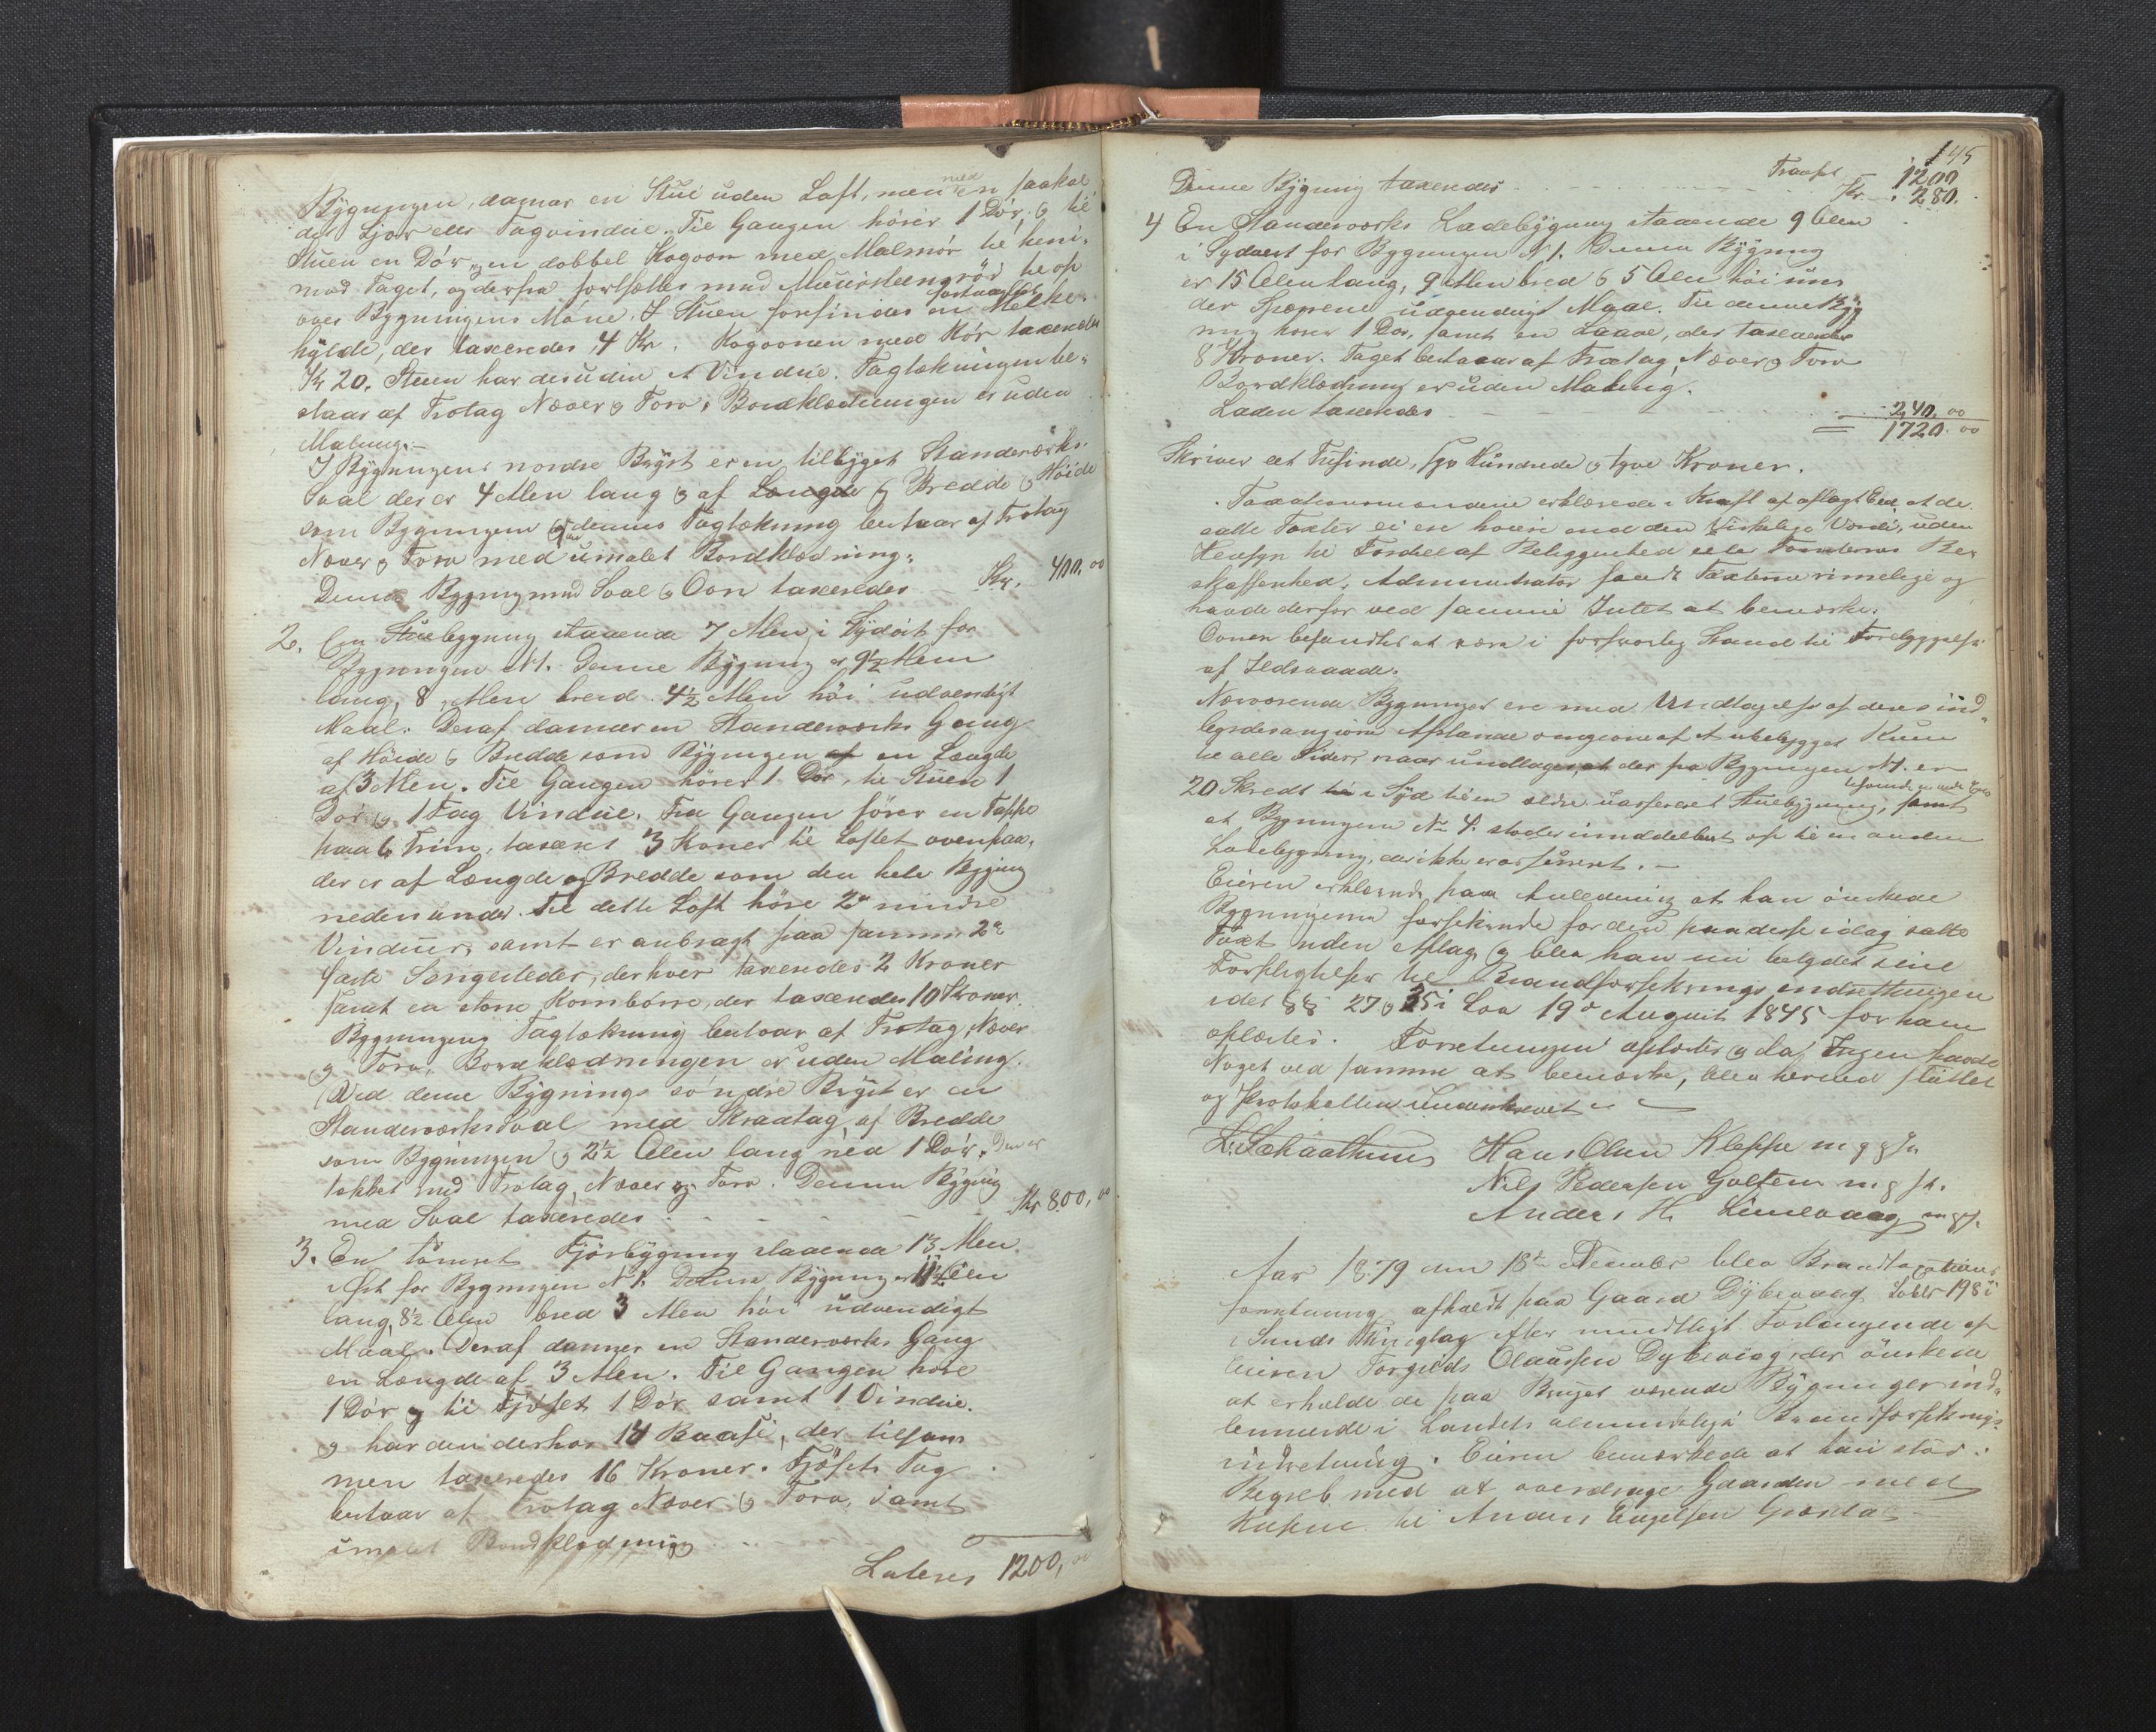 Bygningen, danner en Stue uden Loft, men med en saakal
det Ljor eller Tagvindue. Til Gangen hører 1 Dør, & til
Stuen en Dør, en dobbel Kogoon med Malmrør til heni-
mod Taget, og derfra fortsættes med Muurstensrør til op
over Bygningens Møne. I Stuen forfindes en fastnaglet Melke-
hylde, der taxeredes 4 Kr. Kogoonen med Rør taxeredes
Kr 20. Stuen har desuden et Vindue. Tagtækningen be-
staar af Trotag Næver & Torv, Bordklædningen er uden
Maling.
I Bygningens nordre Bryst er en tilbyget Standerværks
Sval der er 4 Alen lang & af Længde & Bredde & Høide
som Bygningen & dennes Tagtækning bestaar af Trotag
Næver & Torv med umalet Bordklædning.
Denne Bygning med Sval & Oon taxeredes Kr. 400,00
2. En Stuebygning staaende 7 Alen i Sydost for
Bygningen N 1. Denne Bygning er 9½ Alen
lang, 8 Alen bred 4½ Alen høi udvendigt
Maal. Deraf danner en Standerværks Gang
af Høide & Bredde som Bygningen af en Længde
af 3 Alen. Til Gangen hører 1 Dør, til Stuen 1
Dør & 1 Fag Vindue. Fra Gangen fører en Trappe
paa 6 Trin, taxeret 3 Kroner til Loftet ovenpaa,
der er af Længde og Bredde som den hele Bygning
nedenunder. Til dette Loft høre 2 mindre
Vinduer, samt er anbragt paa samme 2
faste Sengesteder, der hver taxeredes 2 Kroner
samt en større Kornbørre, der taxeredes 10 Kroner.
Bygningens Tagtækning bestaar af Trotag, Næver
& Torv, Bordklædningen er uden Maling.
Ved denne Bygnings søndre Bryst er en
Standerværkssval med Skraatag af Bredde
som Bygningen & 2½ Alen lang med 1 Dør. Den er
tækket med Trotag, Næver og Torv. Denne Bygning
med Sval taxeredes Kr 800,00
3. En tømret Fjøsbygning staaende 13 Alen
i Øst for Bygningen N 1. Denne Bygning er 11½ Alen
lang, 8½ Alen bred 3 Alen høi udvendigt
Maal. Deraf danner en Standerværks Gang
en Længde af 3 Alen. Til Gangen høre
1 Dør & til Fjøset 1 Dør samt 1 Vindue.
& har den derhos 14 Baase, der tilsam
men taxeredes 16 Kroner. Fjøsets Tag
bestaar af Trotag Næver & Torv, samt
umalet Bordklædning
Lateres 1200,00
145
Transp. 1200
Denne Bygning taxeredes Kr. 280.
4 En Standerværks Ladebygning staaende 9 Alen
i Sydvest for Bygningen N 1. Denne Bygning
er 15 Alen lang, 9 Alen bred & 5 Alen høi un
der Spærrene udvendigt Maal. Til denne Byg
ning hører 1 Dør, samt en Laave, der taxeredes
8 Kroner. Taget bestaaar af Trotag, Næver & Torv
Bordklædning er uden Maling.
Laden taxeredes 240.00
1720.00
Skriver et Tusinde, syv Hundrede & tyve Kroner.
Taxationsmændene erklærede i Kraft af aflagt Eed, at de
satte Taxter ei ere høiere end den virkelige Værdi, uden
Hensyn til Fordeel af Beliggenhed eller Tomternes Be
skaffenhed. Administrator fandt Taxterne rimelige og
havde derfor ved samme Intet at bemærke.
Oonen befandtes at være i forsvarlig Stand til Forebyggelse
af Ildsvaade.
Nærværende Bygninger ere med Undtagelse af deres ind
byrdes angivne Afstande omgivne af et ubebygget Rum
til alle Sider, naar undtages, at der fra Bygningen N 1. er
20 Skredt til i Syd til en ældre uassureret Stuebygning, samt
at Bygningen No 4. støder umiddelbart op til en anden
Ladebygning, der ikke er assureret.
Eieren erklærede paa Anledning at han ønskede
Bygningerne forsikrede for den paa disse idag satte
Taxt uden Aflag & blev han nu betydet sine
Forpligtelser til Brandforsikringsindretningen
idet §§ 27 & 35 i Lov 19de August 1845 for ham
oplæstes. Forretningen oplæstes & da Ingen havde
Noget ved samme at bemærke, blev hermed sluttet
og Protokollen underskrevet
Hans Olsen Kleppe m p P.
Nils Pedersen Golten m p P.
Anders H. Limevaag m p P.
Aar 1879 den 18de December blev Brandtaxations
forretning afholdt paa Gaard Dybevaag Løbe No 198 i
Sunds Thinglag efter mundtligt Forlangende af
Eieren Torgeds Olaussen Dybevaag, der ønskede
at erholde de paa Bruget værende Bygninger ind
lemmede i Landets almindelige Brandforsikrings
indretning. Eieren bemærkede at han stod i
Begreb med at overdrage Gaarden med
Husene til Anders Engelsen